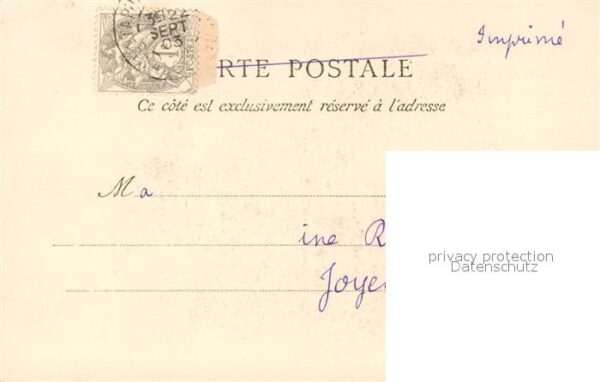 22
SEPT
03
Imprimé
RTE POSTALE
Ce côté est exclusivement réservé à l'adresse
Ma
ine R
privacy protection
Datenschutz
Joye